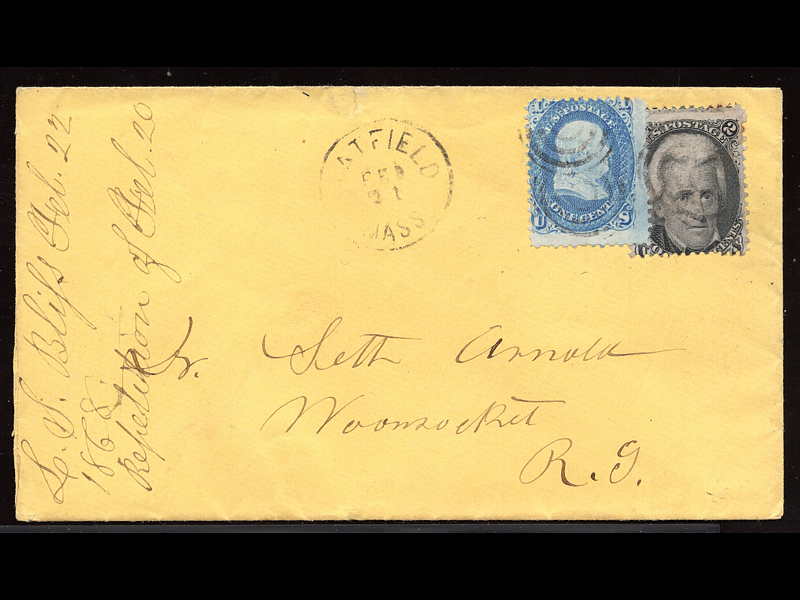 L. S. Bliss Feb. 22
1868
Repetition of Feb. 20
ATFIELD
FEB
21
MASS
U.S. POSTAGE
ONE CENT
U.S. POSTAGE
2
CENTS
Dr. Seth Arnold
Woonsocket
R. I.